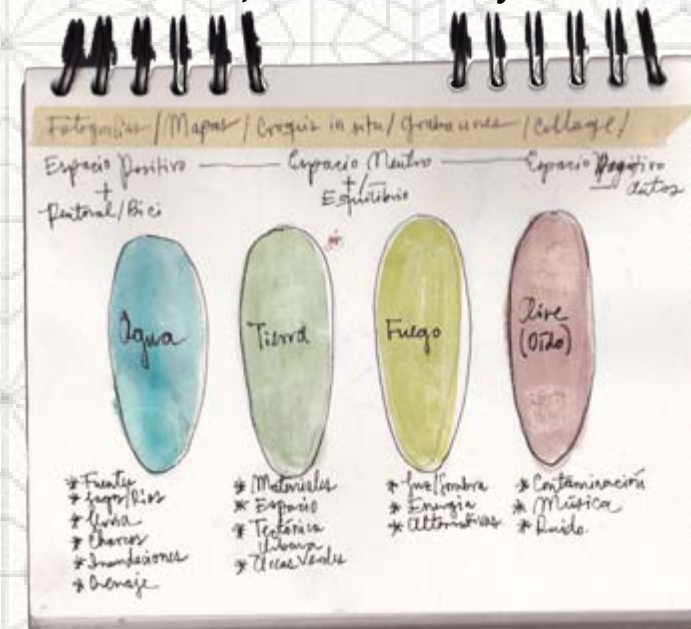 Fotografías / Mapas / Croquis in situ / grabaciones / Collage /
Espacio Positivo — Espacio Neutro — Espacio Negativo
+ +/− − autos
Peatonal/Bici Equilibrio
Agua
Tierra
Fuego
Aire
(Oído)
* Fuentes
* Lagos/Ríos
* lluvia
* Charcos
* Inundaciones
* Drenaje
* Materiales
* Espacio
* Tectónica
Urbana
* Áreas Verdes
* Luz/Sombra
* Energía
* Alternativas
* Contaminación
* Música
* Ruido